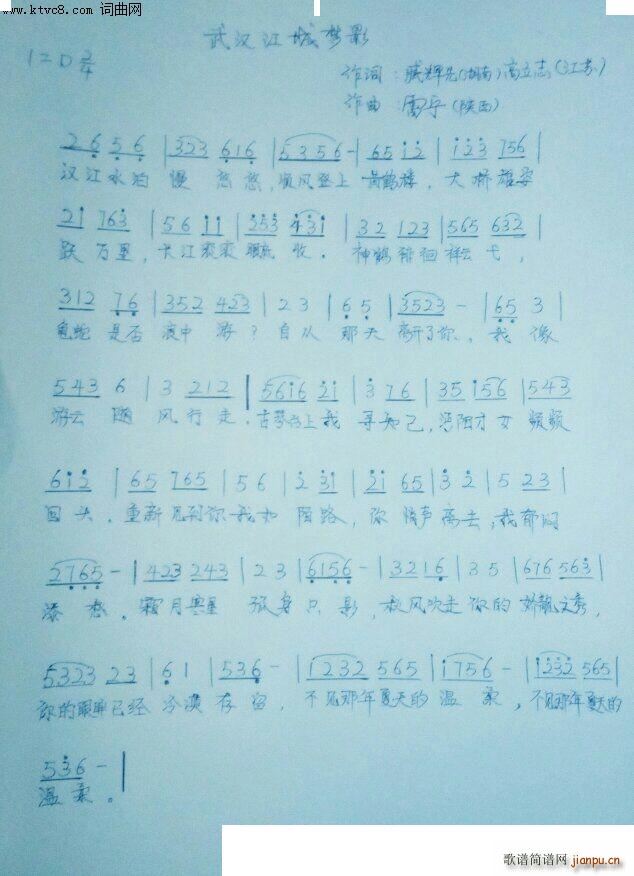 www.ktvc8.com 词曲网
武汉江城梦影
1=D 2/4
作词:臧辉先(湖南)高立志(江苏)
作曲:雷宇(陕西)
2 6 5 6 | 323 616 | 5356- | 65 12 | 123 756 |
汉江水泊 慢 悠 悠,顺风登上 黄鹤楼,大桥雄姿
21 763 | 56 11 | 253 431 | 32 123 | 565 632 |
跃 万里,长江滚滚 眼 收. 神鹤徘徊祥云 弋,
312 76 | 352 423 | 2 3 | 6 5 | 3523 - | 65 3 |
龟蛇 是否 浪中 游?自从 那天 离开了你,我 像
543 6 | 3 212 | 5616 21 | 3 76 | 35 156 | 543
游云 随 风行走.古琴台上我 寻知己,汉阳才女 频频
612 | 65 765 | 56 | 2 31 | 21 65 | 3 2 | 5 23 |
回头.重新见到你我如 陌路,你 悄声离去,我郁闷
2765 - | 423 243 | 2 3 | 6156 - | 3216 | 3 5 | 676 563 |
添 愁. 霜月寒星 孤身只影,秋风吹走你的 娇靓文秀,
5323 23 | 6 1 | 536 - | 1232 565 | 1756 - | 1232 565 |
你的眼眸已经 冷漠存留,不见那年夏天的 温 柔,不见那年夏天的
536 - |
温 柔。
歌谱简谱网
jianpu.cn